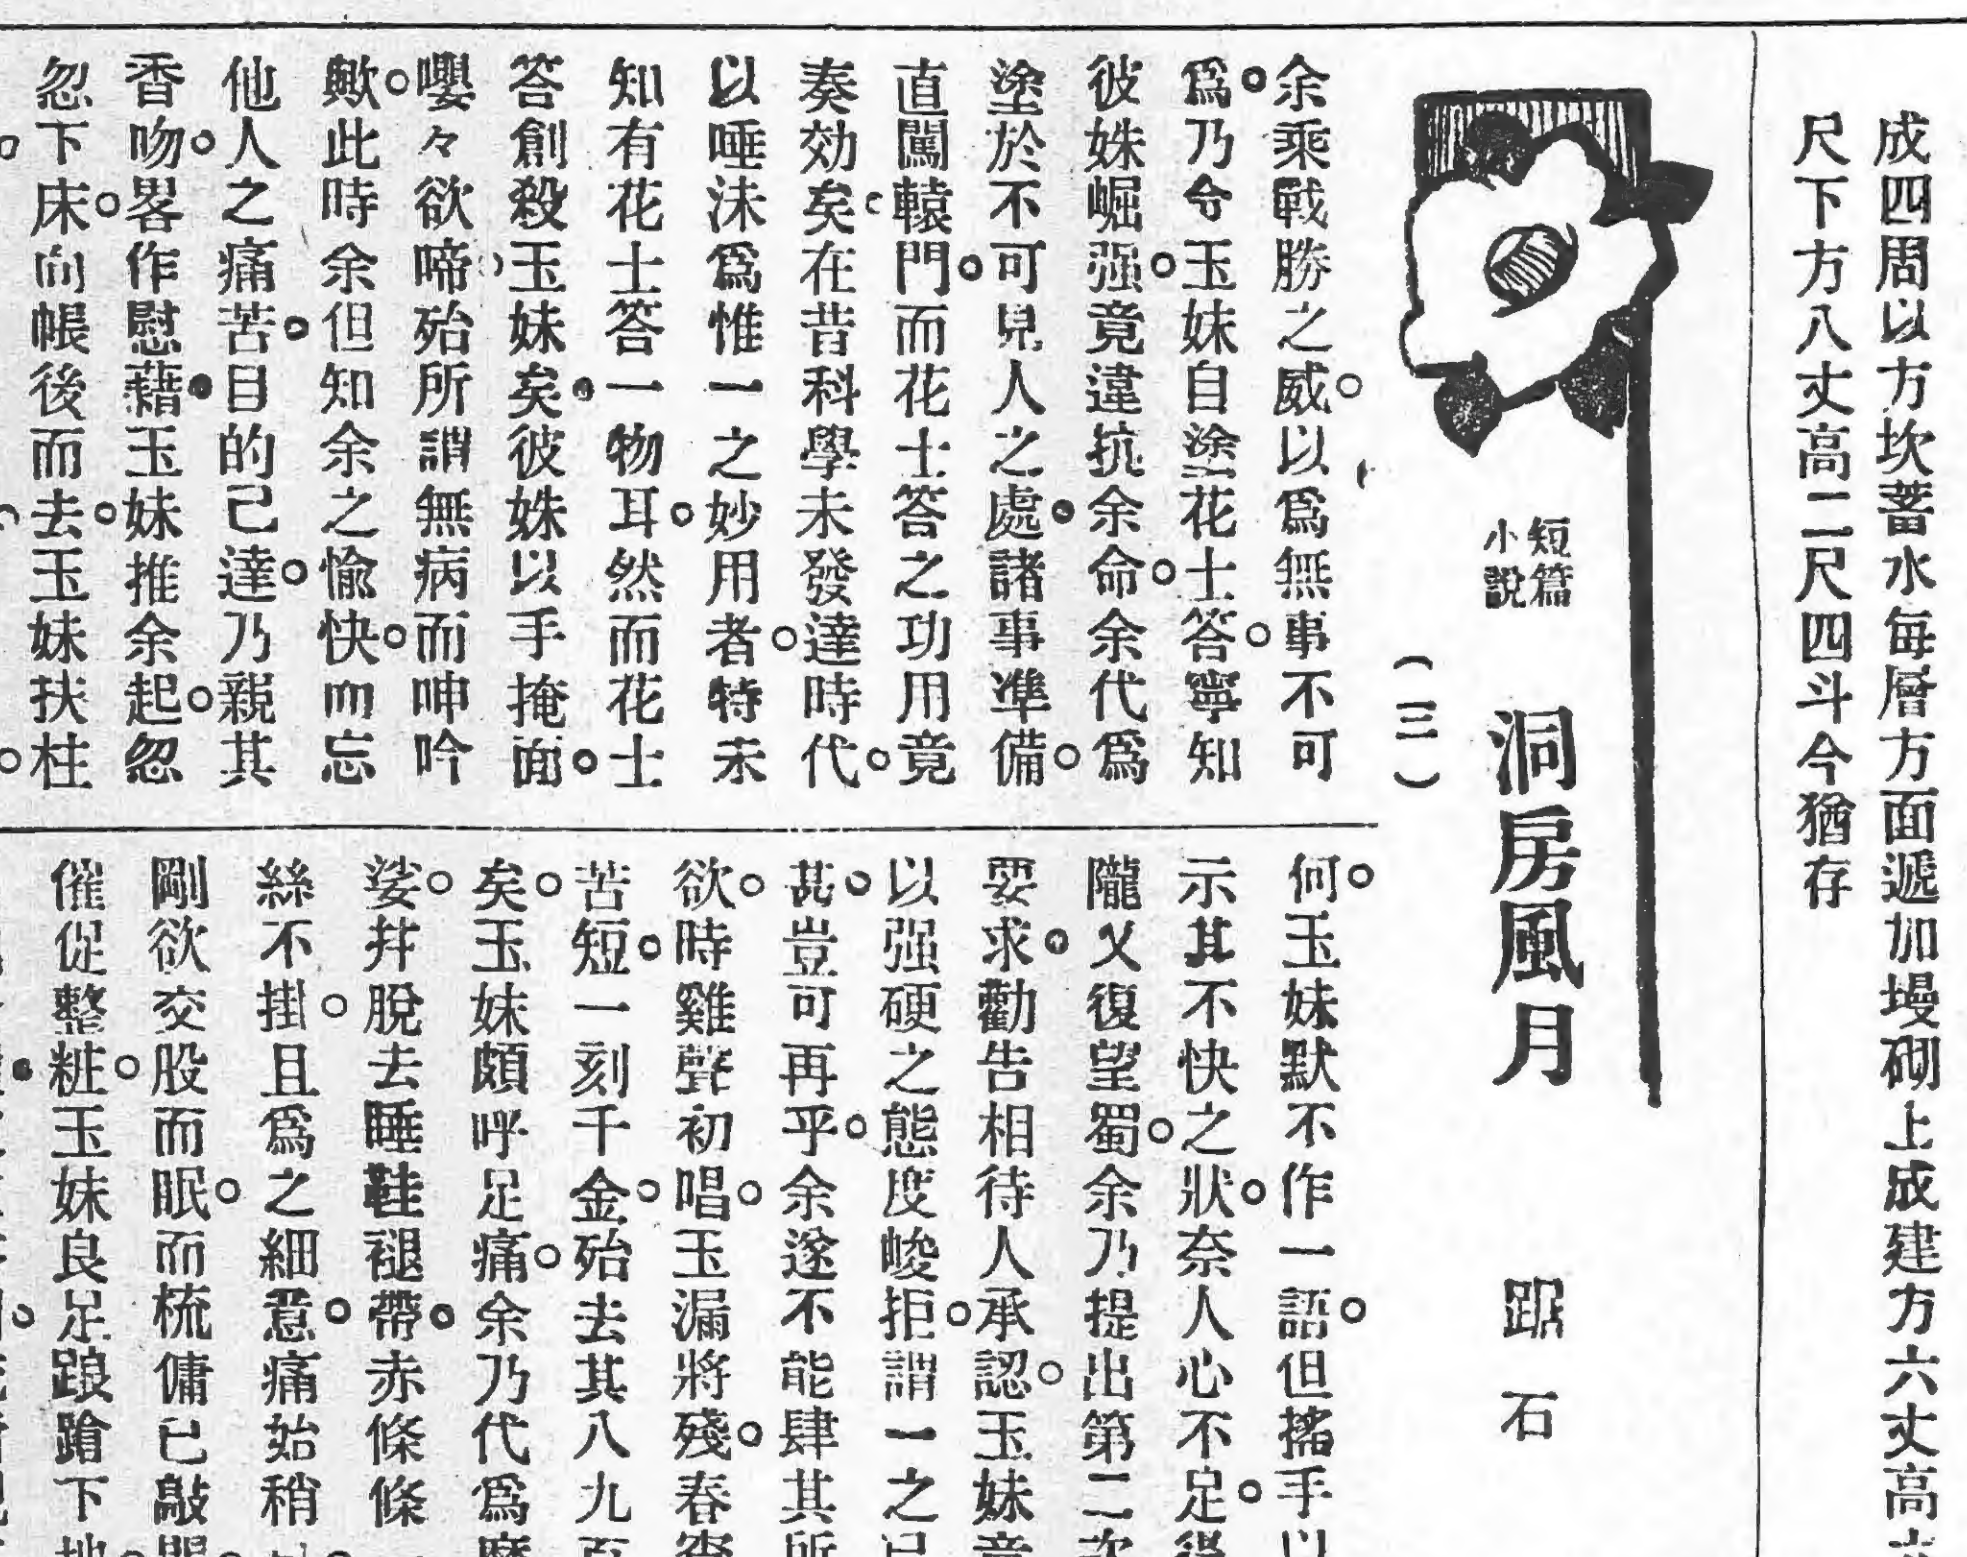 成四周以方坎蓄水每層方面遞加墁砌上成建方六丈高
尺下方八丈高二尺四斗今猶存
短篇
小說
洞房風月
石
（三）
余乘戰勝之威。以爲無事不可
爲。乃令玉妹自塗花士答。寧知
彼姝崛强。竟違抗余命。余代爲
塗於不可見人之處。諸事準備。
直闖轅門。而花士答之功用竟
奏効矣。在昔科學未發達時代。
以唾沫爲惟一之妙用者。特未
知有花士答一物耳。然而花士
答創殺玉妹矣。彼姝以手掩面。
嚶々欲啼。殆所謂無病而呻吟
歟。此時余但知余之愉快。而忘
他人之痛苦。目的已達。乃親其
香吻。畧作慰藉。玉妹推余起。忽
忽下床。向帳後而去。玉妹扶柱
何。玉妹默不作一語。但搖手以
示其不快之狀。奈人心不足。得
隴又復望蜀。余乃提出第二次
要求。勸告相待人承認。玉妹竟
以强硬之態度峻拒。謂一之已
甚。豈可再乎。余遂不能肆其所
欲。時雞聲初唱。玉漏將殘。春宵
苦短。一刻千金。殆去其八九百
矣。玉妹頗呼足痛。余乃代爲摩
娑。幷脫去睡鞋褪帶。赤條條
絲不掛。且爲之細意。痛始稍
剛欲交股而眠。而梳傭已敲門
催促整粧。玉妹良足踉蹌下地